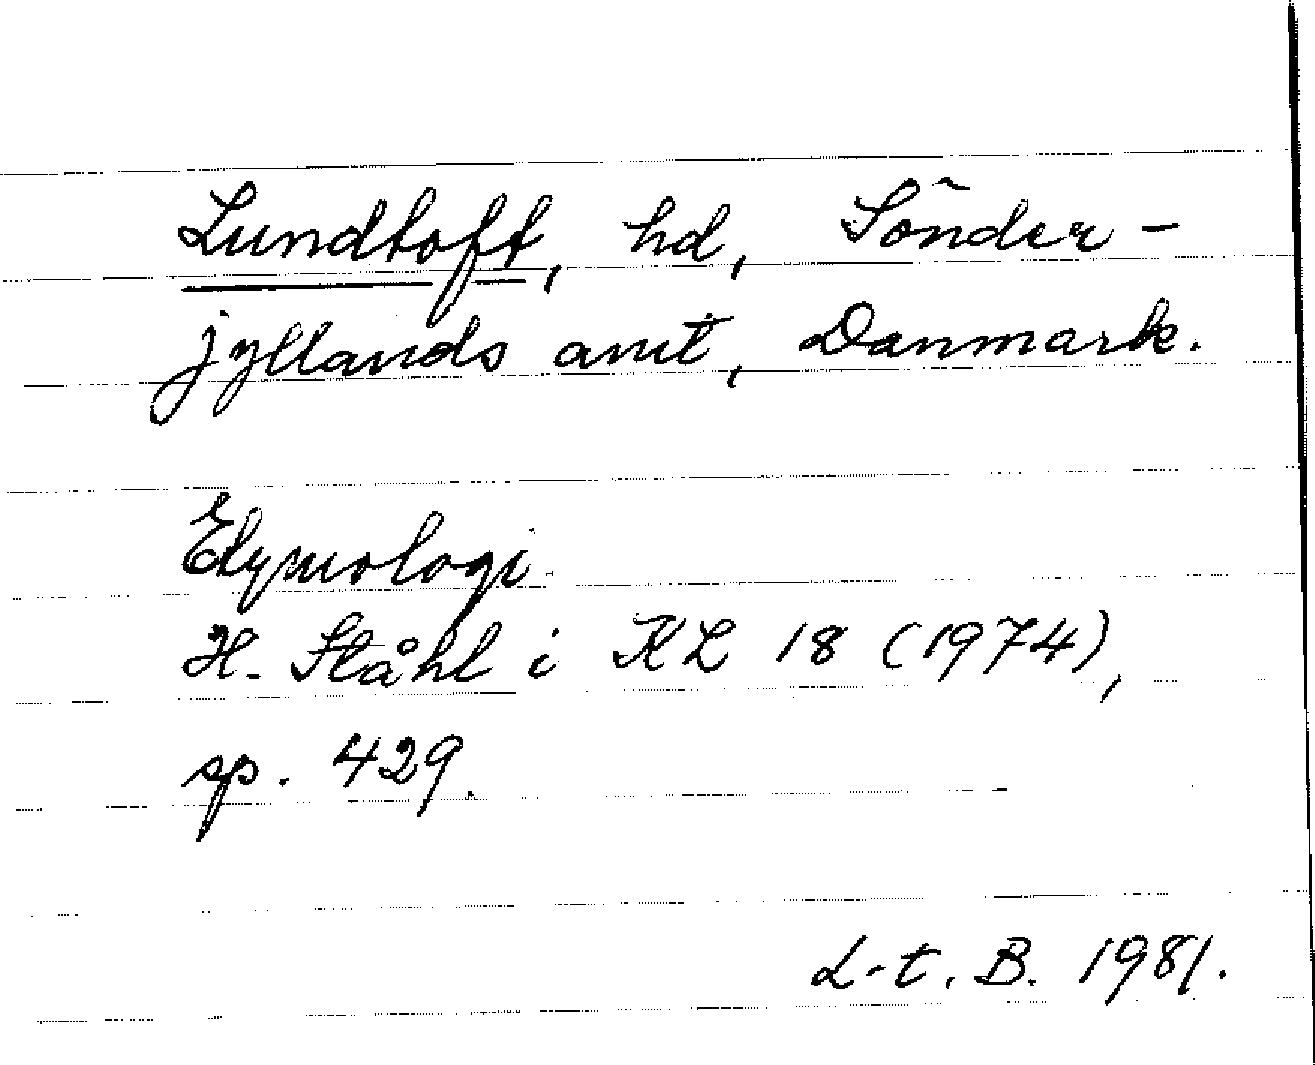 Lundtoft, hd, Sönder-
jyllands amt, Danmark.
Etymologi
H. Ståhl i KL 18 (1974),
sp. 429.
L-t. B. 1981.